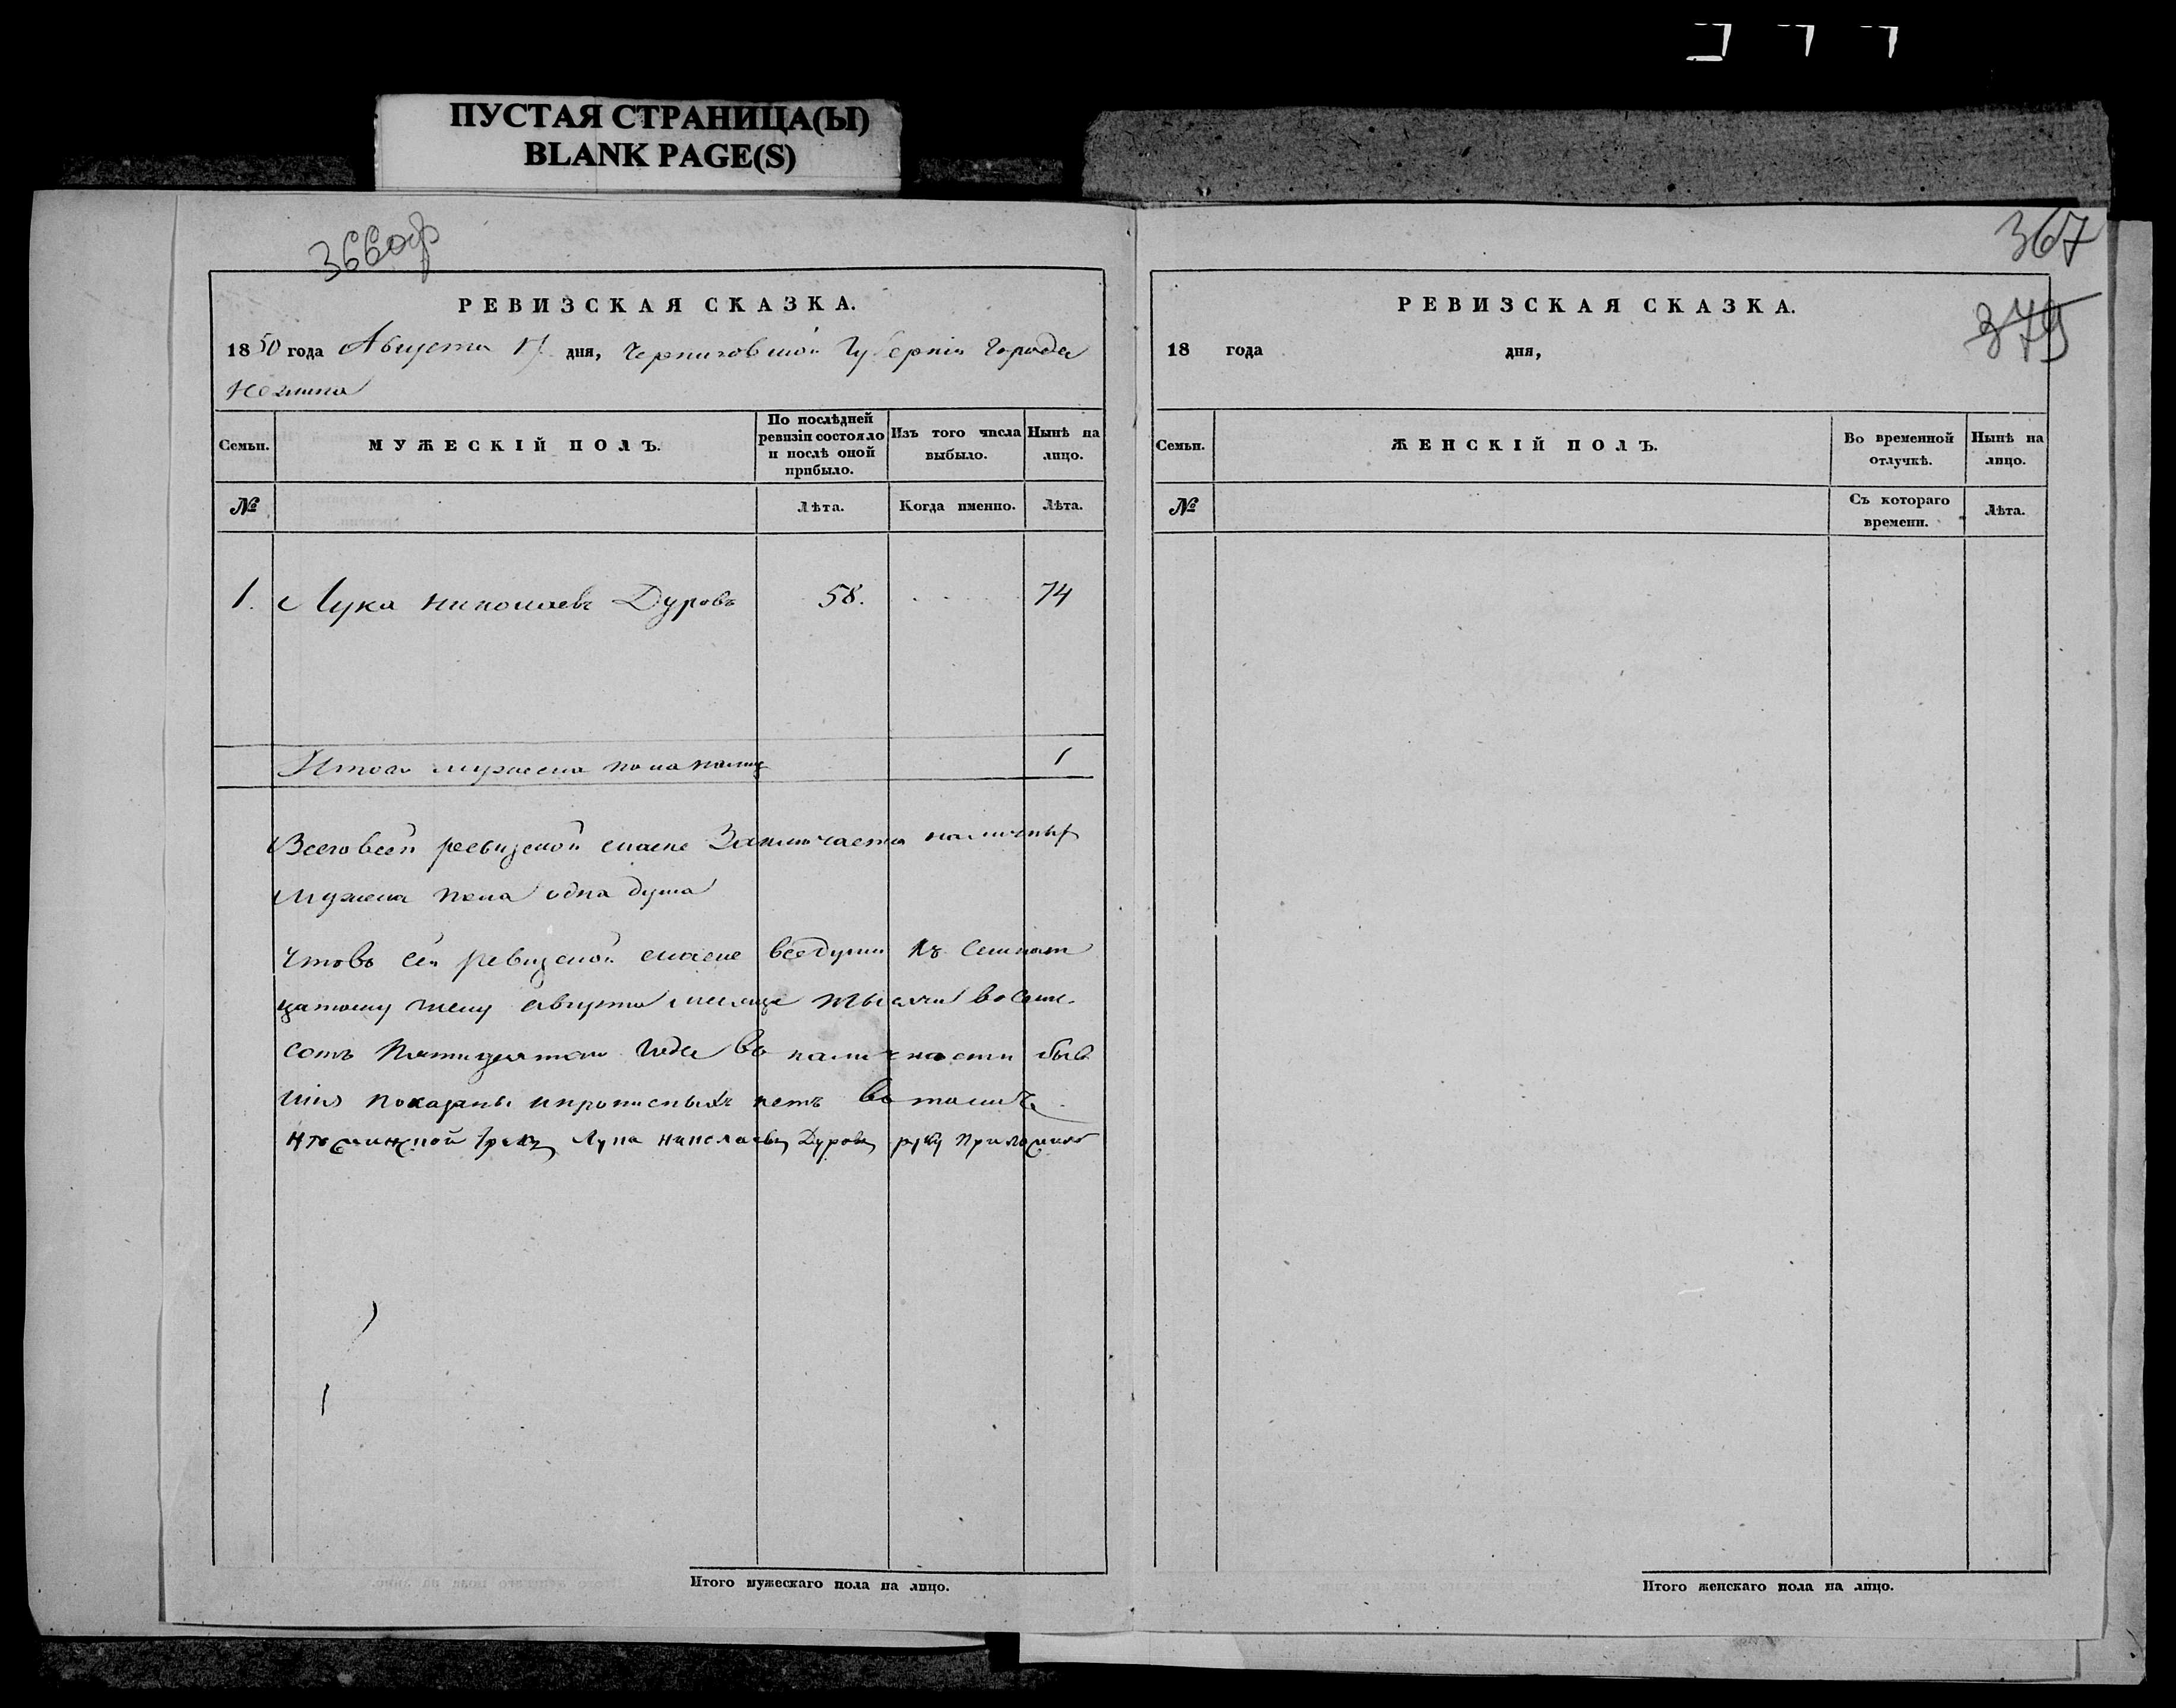 ПУСТАЯ СТРАНИЦА(Ы)
BLANK PAGE(S)
366оф
РЕВИЗСКАЯ СКАЗКА.
1850 года Августа 17 дня, Черниговской Губерніи Города
Нежина
Семьи.
МУЖЕСКІЙ ПОЛЪ.
По послѣдней ревизіи состояло и послѣ оной прибыло.
Изъ того числа выбыло.
Нынѣ на лицо.
№
Лѣта.
Когда именно.
Лѣта.
1. Лука Николаевъ Дуровъ 58. 74
Итого мужеска пола налицо 1
Всего в сей ревизской сказке Заключается наличных
мужеска пола одна душа
Что въ сей ревизской сказке все души къ Семнат
цатому числу августа месяца тысяча восем
сотъ Пятидесятаго Года Въ наличности быв
шия показаны и прописныхъ нетъ Въ томъ
Нѣжинской Грекъ Лука Николаевъ Дуровъ руку приложилъ
Итого мужескаго пола на лицо.
367
379
РЕВИЗСКАЯ СКАЗКА.
18 года дня,
Семьи.
ЖЕНСКІЙ ПОЛЪ.
Во временной отлучкѣ.
Нынѣ на лицо.
№
Съ котораго времени.
Лѣта.
Итого женскаго пола на лицо.